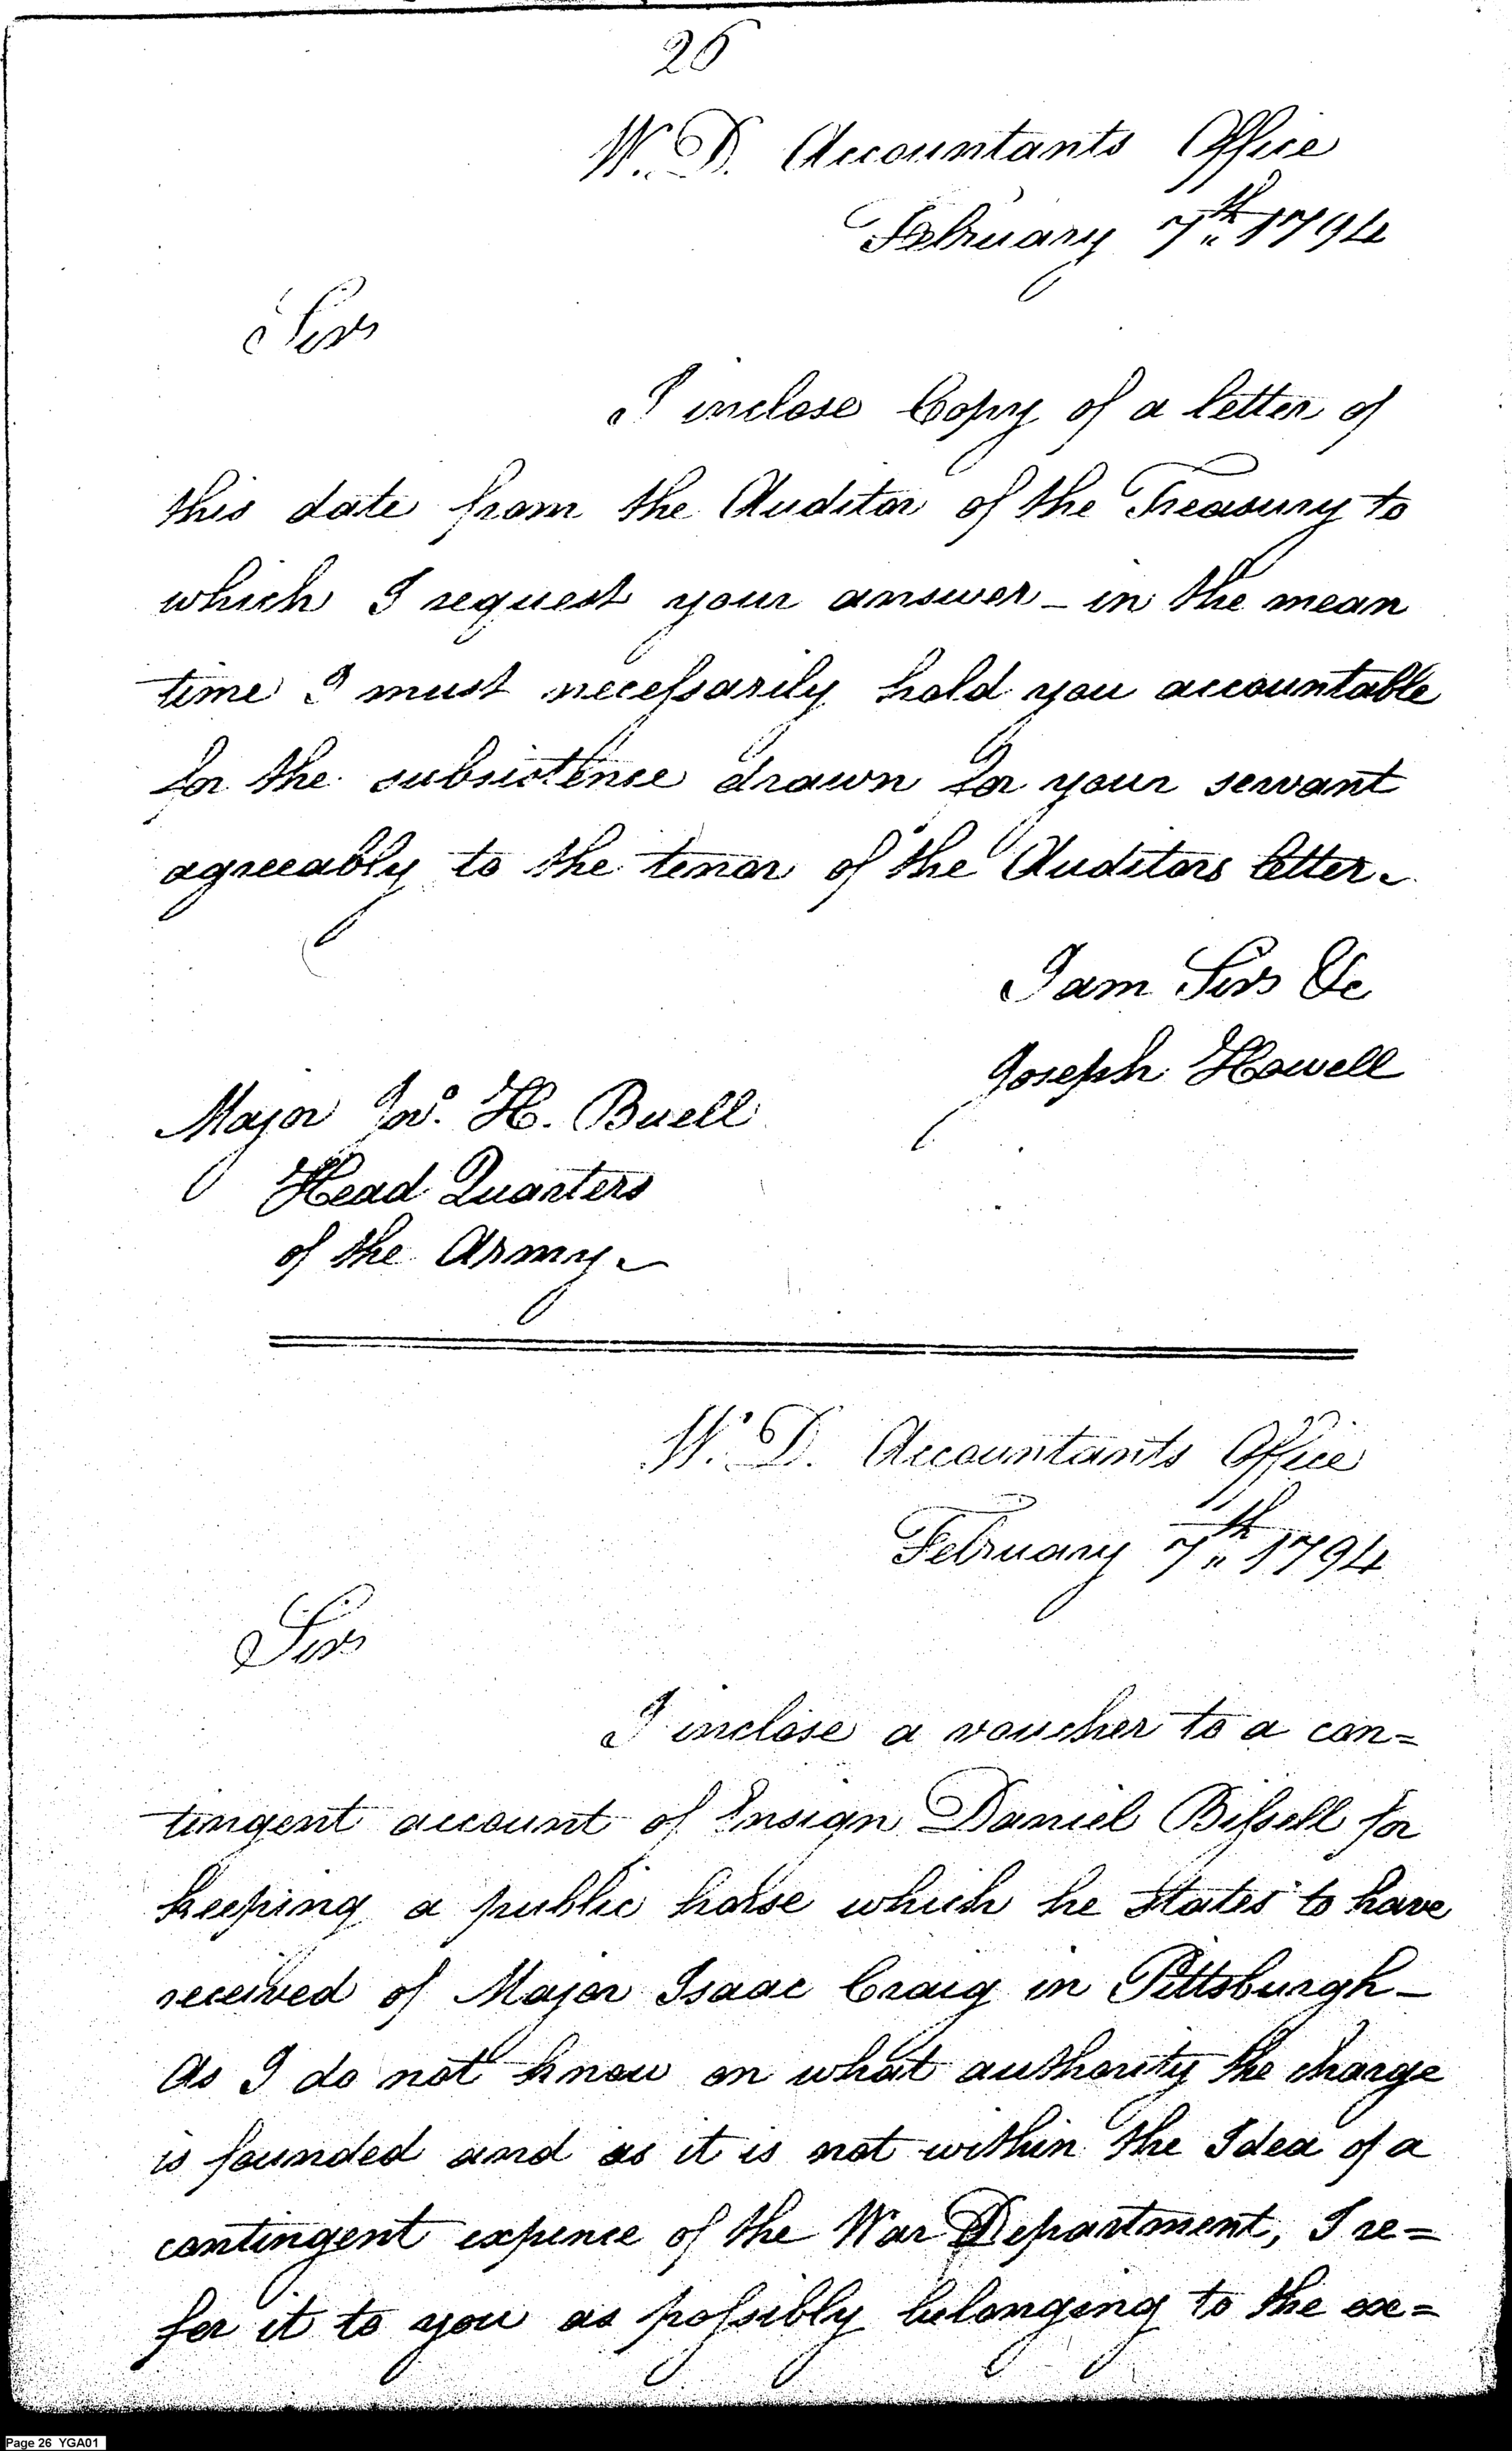 26
W. D. Accountants Office
February 7th 1794
Sir
I inclose Copy of a letter of
this date from the Auditor of the Treasury to
which I request your answer - in the mean
time I must neceſsarily hold you accountable
for the subsistence drawn for your servant
agreeably to the tenor of the Auditors letter.
I am Sir &c
Joseph Howell
Major Jno. H. Buell
Head Quarters
of the Army.
W. D. Accountants Office
February 7th 1794
Sir
I inclose a voucher to a con=
tingent account of Ensign Daniel Biſsell for
keeping a public horse which he states to have
received of Major Isaac Craig in Pittsburgh -
As I do not know on what authority the charge
is founded and as it is not within the Idea of a
contingent expence of the War Department, I re=
fer it to you as poſsibly belonging to the ex=
Page 26 YGA01